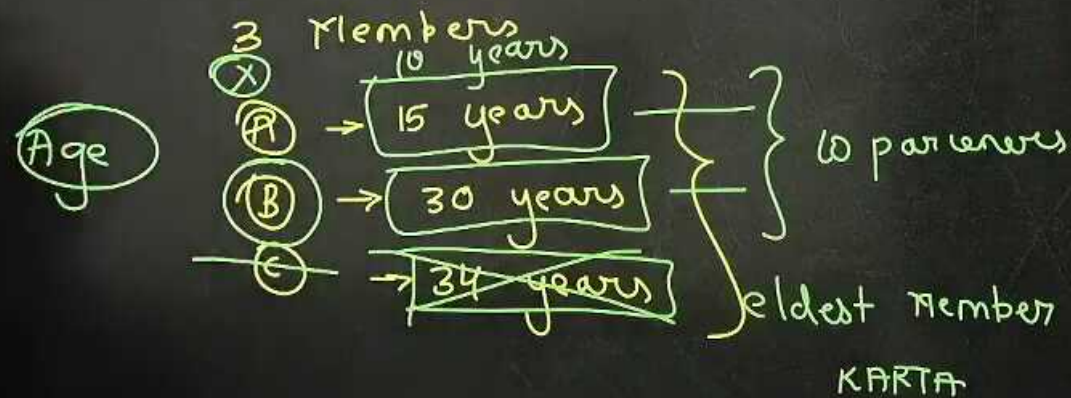 3 Members
X 10 years
Age A → 15 years
B → 30 years
C → 34 years
co parceners
eldest Member
KARTA